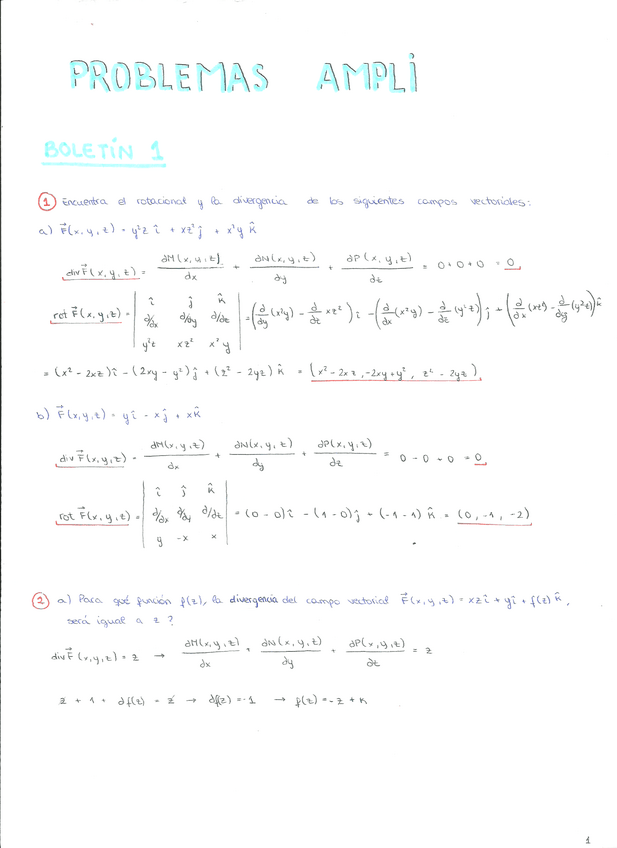 PROBLEMAS AMPLI
BOLETÍN 1
① Encuentra el rotacional y la divergencia de los siguientes campos vectoriales:
a) F⃗(x,y,z) = y²z î + xz² ĵ + x²y k̂
div F⃗(x,y,z) = ∂M(x,y,z)/dx + ∂N(x,y,z)/dy + ∂P(x,y,z)/dz = 0+0+0 = 0
rot F⃗(x,y,z) = | î ĵ k̂ | = (∂/dy (x²y) - ∂/dz xz²) î - (∂/dx (x²y) - ∂/dz (y²z)) ĵ + (∂/dx (xz²) - ∂/dy (y²z)) k̂
∂/dx ∂/dy ∂/dz
y²z xz² x²y
= (x² - 2xz) î - (2xy - y²) ĵ + (z² - 2yz) k̂ = (x² - 2xz, -2xy + y², z² - 2yz)
b) F⃗(x,y,z) = y î - x ĵ + x k̂
div F⃗(x,y,z) = ∂M(x,y,z)/dx + ∂N(x,y,z)/dy + ∂P(x,y,z)/dz = 0 - 0 + 0 = 0
î ĵ k̂
rot F⃗(x,y,z) = | ∂/dx ∂/dy ∂/dz | = (0-0) î - (1-0) ĵ + (-1-1) k̂ = (0, -1, -2)
y -x x
② a) Para qué función f(z), la divergencia del campo vectorial F⃗(x,y,z) = xz î + y î + f(z) k̂,
será igual a z?
div F⃗(x,y,z) = z → ∂M(x,y,z)/dx + ∂N(x,y,z)/dy + ∂P(x,y,z)/dz = z
z + 1 + ∂f(z) = z → ∂f(z) = -1 → f(z) = -z + K
1